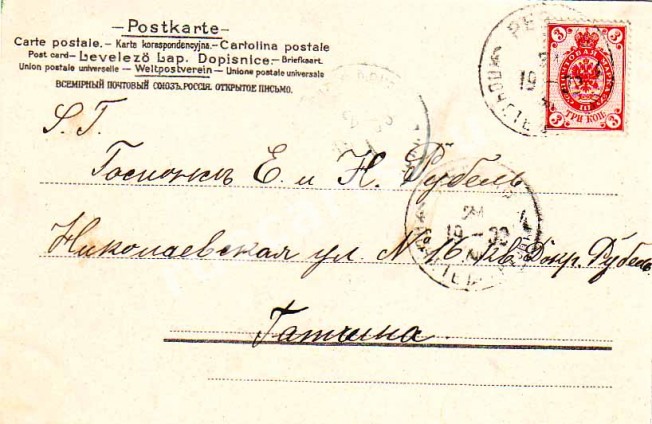 Postkarte
Carte postale. – Karte korespondencyjna. – Cartolina postale
Post card – Levelező Lap. Dopisnice. – Briefkaart.
Union postale universelle – Weltpostverein – Unione postale universale
ВСЕМІРНЫЙ ПОЧТОВЫЙ СОЮЗЪ, РОССІЯ. ОТКРЫТОЕ ПИСЬМО.
3 3
3 ТРИ КОП. 3
S. T.
Е. и Н. Рубель
Николаевская ул. N 16 кв. Докт. Рубель
Гатчина